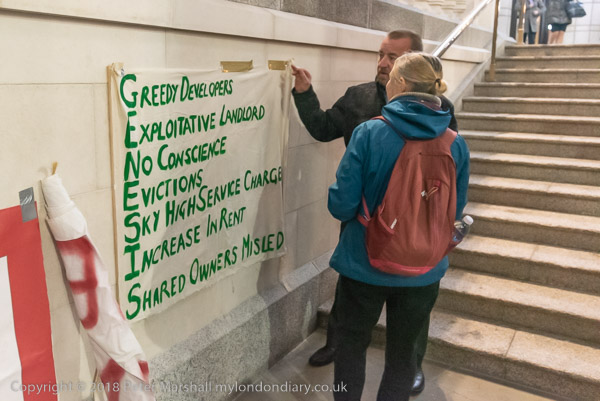 GREEDY DEVELOPERS
EXPLOITATIVE LANDLORD
NO CONSCIENCE
EVICTIONS
SKY HIGH SERVICE CHARGE
INCREASE IN RENT
SHARED OWNERS MISLED
Copyright © 2018 Peter Marshall.mylondondiary.co.uk